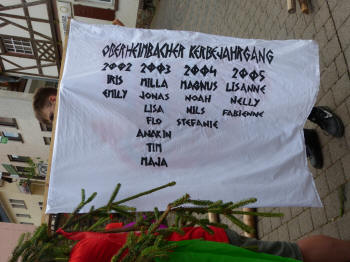 OBERHEIMBACHER KERBEJAHRGANG
2002 2003 2004 2005
IRIS MILLA MAGNUS LISANNE
EMILY JONAS NOAH NELLY
LISA NILS FABIENNE
FLO STEFANIE
ANAKIN
TIM
MAJA